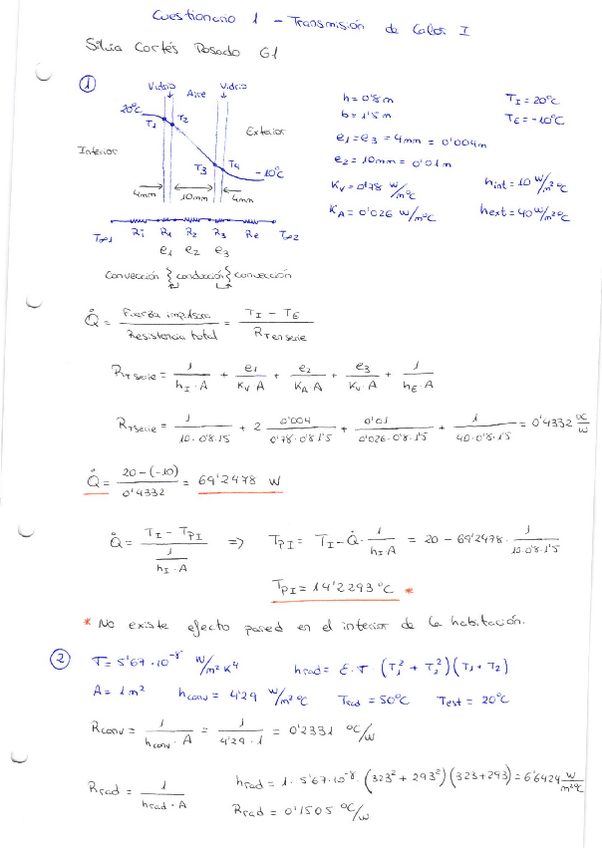 Cuestionario 1 - Transmisión de Calor I
Silvia Cortés Posado G1
①
Vidrio Aire Vidrio
20°C
T1 T2
Exterior
Interior
T3 T4
-10°C
4mm 10mm 4mm
T∞1 Ri R1 R2 R3 Re T∞2
e1 e2 e3
Convección { conducción } convección
h = 0'8 m
b = 1'5 m
e1 = e3 = 4mm = 0'004m
e2 = 10mm = 0'01 m
Kv = 0'78 W/m°C
KA = 0'026 W/m°C
TI = 20°C
TE = -10°C
hint = 10 W/m²°C
hext = 40 W/m²°C
Q̇ = Fuerza impulsora / Resistencia total = TI - TE / RT en serie
RT serie = 1 / hI·A + e1 / Kv·A + e2 / KA·A + e3 / Kv·A + 1 / hE·A
RT serie = 1 / 10·0'8·1'5 + 2 0'004 / 0'78·0'8·1'5 + 0'01 / 0'026·0'8·1'5 + 1 / 40·0'8·1'5 = 0'4332 °C/W
Q̇ = 20-(-10) / 0'4332 = 69'2478 W
Q̇ = TI - TPI / 1 / hI·A ⇒ TPI = TI - Q̇ · 1 / hI·A = 20 - 69'2478 · 1 / 10·0'8·1'5
TPI = 14'2293 °C *
* No existe efecto pared en el interior de la habitación.
② T = 5'67·10⁻⁸ W/m²K⁴ hrad = ε·T (T1² + T2²)(T1 + T2)
A = 1 m² hconv = 4'29 W/m²°C Trad = 50°C Test = 20°C
Rconv = 1 / hconv·A = 1 / 4'29·1 = 0'2331 °C/W
Rrad = 1 / hrad·A hrad = 1·5'67·10⁻⁸·(323² + 293²)(323+293) = 6'6424 W/m²°C
Rrad = 0'1505 °C/W